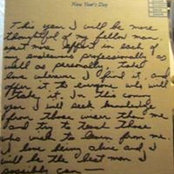 New Year's Day
This year I will be more
thoughtful of my fellow man,
exert more effort in each of
my endeavors professionally as
well as personally, take
love wherever I find it, and
offer it to everyone who will
take it. In this coming
year I will seek knowledge
from those wiser than me
and try to teach those
who wish to learn from me.
I love being alive and I
will be the best man I
possibly can